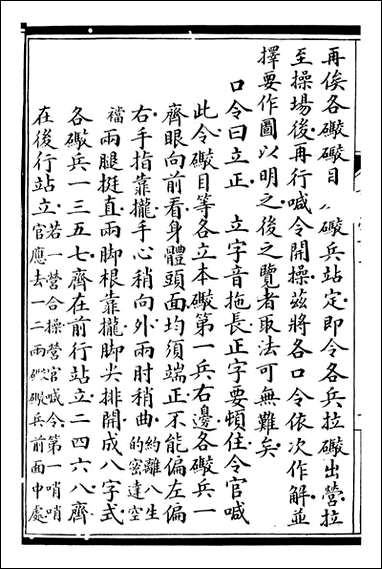 再俟各礮礮目〻礮兵站定即令各兵拉礮出營拉
至操場後再行喊令開操茲將各口令依次作解並
擇要作圖以明之後之覽者取法可無難矣
口令曰立正　立字音拖長正字要頓住令官喊
此令礮目等各立本礮第一兵右邊各礮兵一
齊眼向前看身體頭面均須端正不能偏左偏
右手指靠攏手心稍向外兩肘稍曲約離八生的密達空
襠兩腿挺直兩脚根靠攏脚尖排開成八字式
各礮兵一三五七齊在前行站立二四六八齊
在後行站立若一營合操營官喊令第一哨哨官應去一二兩礮礮兵前面中處